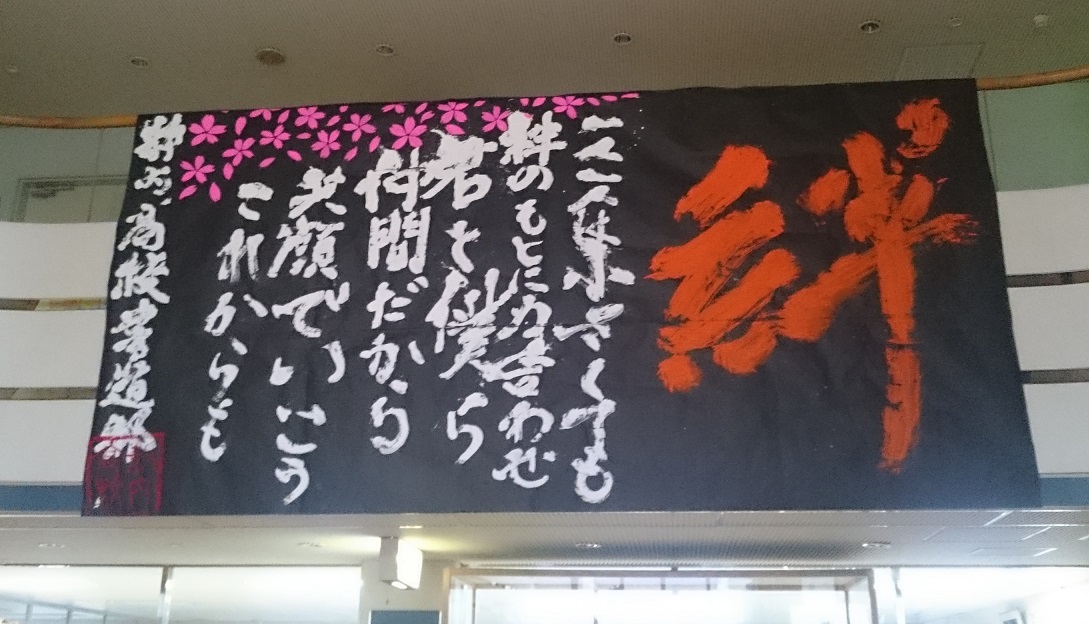 絆
一人一人は小さくても
絆のもとに力合わせ
君と僕ら
仲間だから
笑顔でいこう
これからも
静内高校書道部